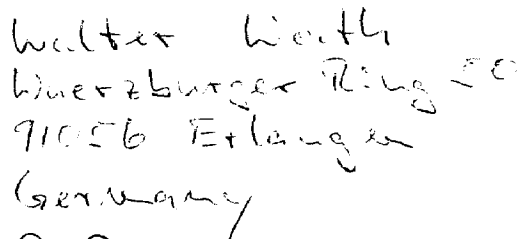 Walter Wirth
Wuerzburger Ring 50
91056 Erlangen
Germany